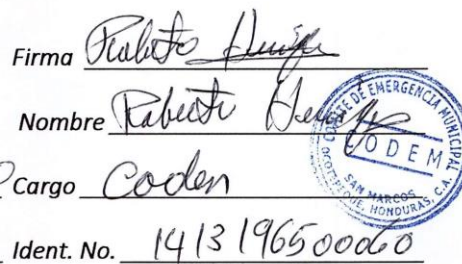 Firma Roberto
Nombre Roberto
Cargo Coden
Ident. No. 1413196500060
COMITE DE EMERGENCIA MUNICIPAL
CODEM
SAN MARCOS
OCOTEPEQUE, HONDURAS, C.A.